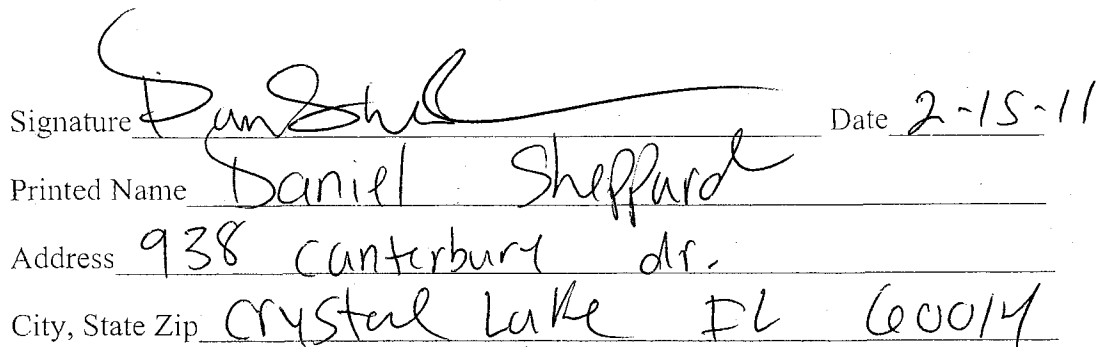 Signature Dan Sh Date 2-15-11
Printed Name Daniel Sheppard
Address 938 Canterbury dr.
City, State Zip Crystal Lake IL 60014